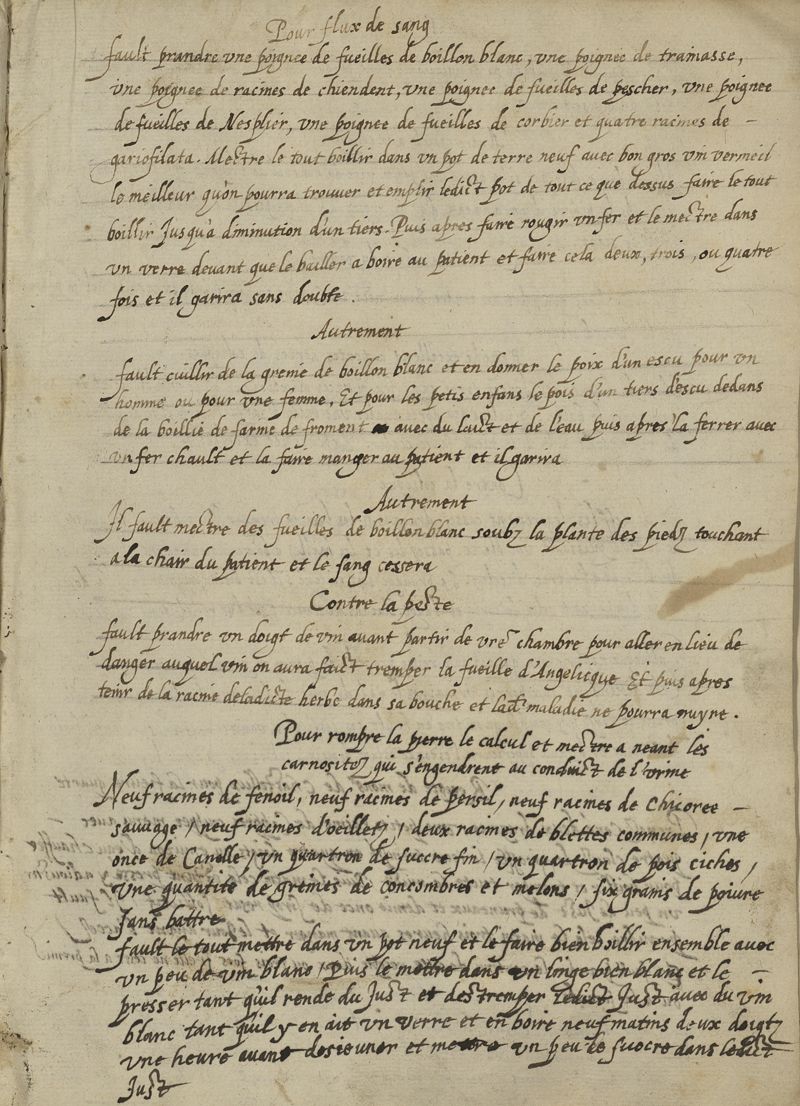 Pour flux de sang
fault prandre une poignee de fueilles de boillon blanc, une poignee de trainasse,
une poignee de racines de chiendent, une poignee de fueilles de pescher, une poignee
de fueilles de Nesplier, une poignee de fueilles de corbier et quatre racines de –
gariofilata. Mectre le tout boillir dans un pot de terre neuf avec bon gros vin vermeil
le meilleur qu'on pourra trouver et emplir ledict pot de tout ce que dessus faire le tout
boillir Jusqu'a diminution d'un tiers. Puis apres faire rougir un fer et le mectre dans
un verre devant que le bailler a boire au patient et faire cela deux, trois, ou quatre
fois et il garira sans doubte.
Autrement
fault cuillir de la greine de boillon blanc et en donner le poix d'un escu pour un
homme ou pour une femme, Et pour les petis enfans le pois d'un tiers d'escu dedans
de la boillie de farine de froment avec du laict et de l'eau puis apres la ferrer avec
un fer chault et la faire manger au patient et il garira
Autrement
Il fault mectre des fueilles de boillon blanc soubz la plante des piedz touchant
a la chair du patient et le sang cessera
Contre la peste
fault prandre un doigt de vin avant partir de vre chambre pour aller en lieu de
danger auquel vin on aura faict tremper la fueille d'Angelicque Et puis apres
tenir de la racine de ladicte herbe dans sa bouche et lad. maladie ne pourra nuyre.
Pour rompre la pierre le calcul et mectre a neant les
carnositez qui s'engendrent au conduict de l'urine
Neuf racines de fenoil, neuf racines de persil, neuf racines de Chicoree –
sauvage / neuf racines d'oeilletz / deux racines de blettes communes / une
once de Canelle / un quartron de succre fin / un quartron de pois ciches /
une quantite de greines de concombres et melons / six grains de poivre
sans battre
fault le tout mettre dans un pot neuf et le faire bien boillir ensemble avec
un peu de vin blanc / Puis le mettre dans un linge bien blanc et le –
presser tant qu'il rende du Just et destremper ledict Just avec du vin
blanc tant qu'il y en ait un verre et en boire neuf matins deux doigtz
une heure avant desieuner et mettre un peu de succre dans ledict
Just